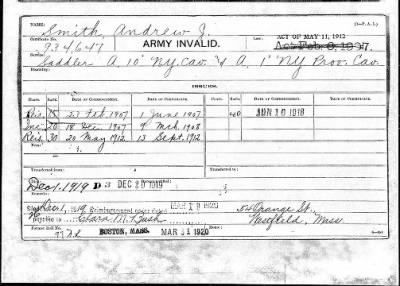 NAME: Smith, Andrew J. (3—P. A. L.)
Certificate No. ACT OF MAY 11, 1912
934647 ARMY INVALID. Act Feb. 6, 1907.
Saddler A, 10" N.Y. Cav. & A, 1" N.Y. Prov. Cav.
RATE. DATE OF COMMENCEMENT. DATE OF CERTIFICATE. RATE. DATE OF COMMENCEMENT. DATE OF CERTIFICATE.
Ris. 15 23 Feb 1907 1 June 1907 40 JUN 10 1918
Inc. 20 18 Dec 1907 9 Mch. 1908
Ris. 30 20 May 1912 13 Sept. 1912
Dec 1, 1919 D 3 DEC 20 1919
Dec 1, 19 Reimbursement MAR 19 1920 54 Orange St.,
Clara M. Westfield, Mass
BOSTON, MASS. MAR 31 1920